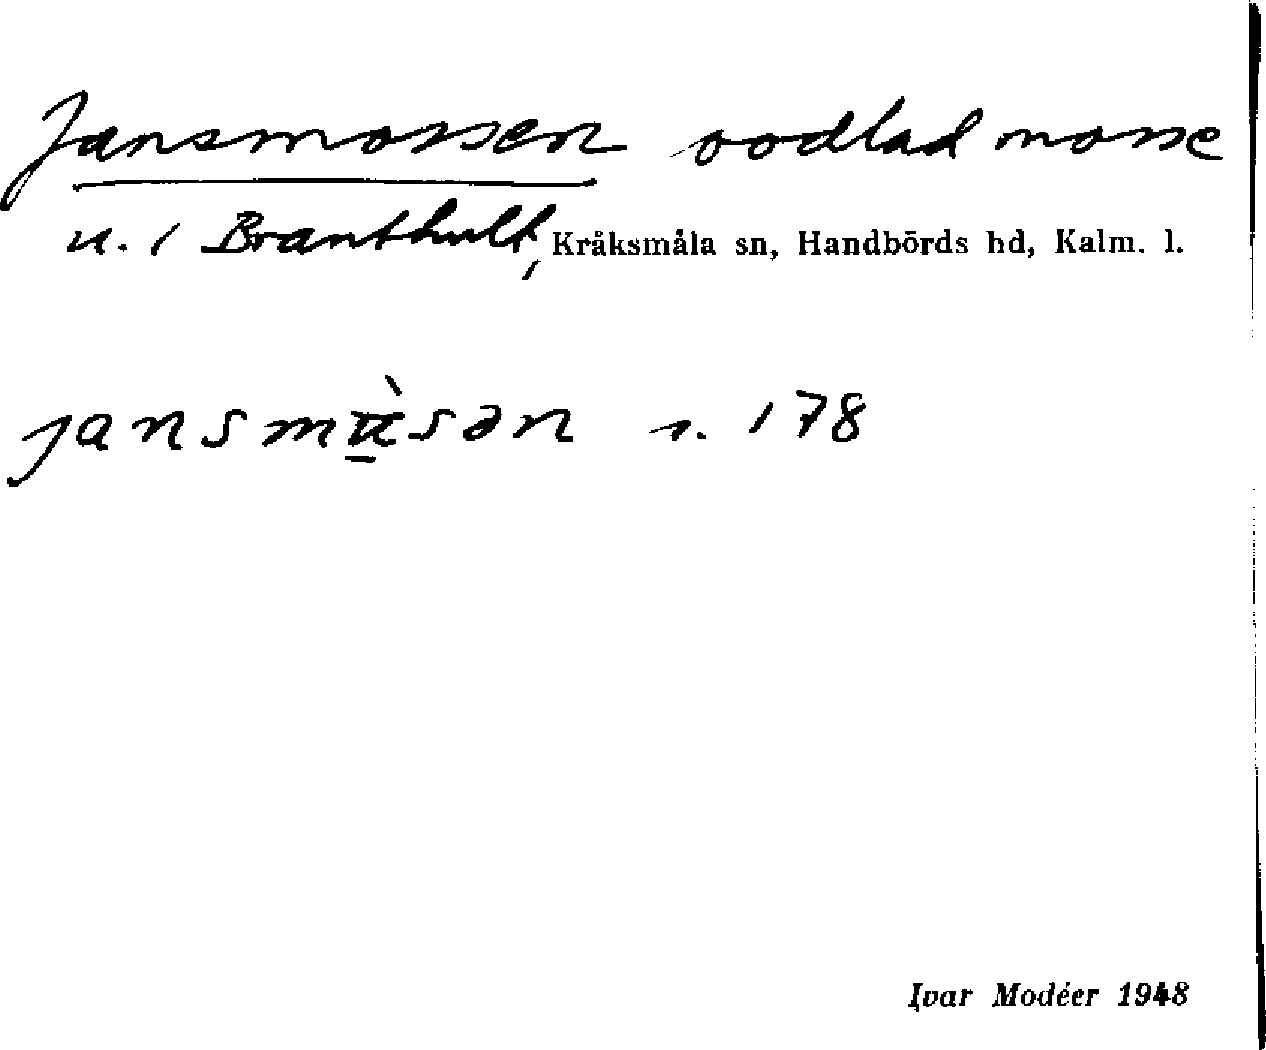 Jansmossen oodlad mosse
u. / Branthult, Kråksmåla sn, Handbörds hd, Kalm. l.
s. 178
Ivar Modéer 1948